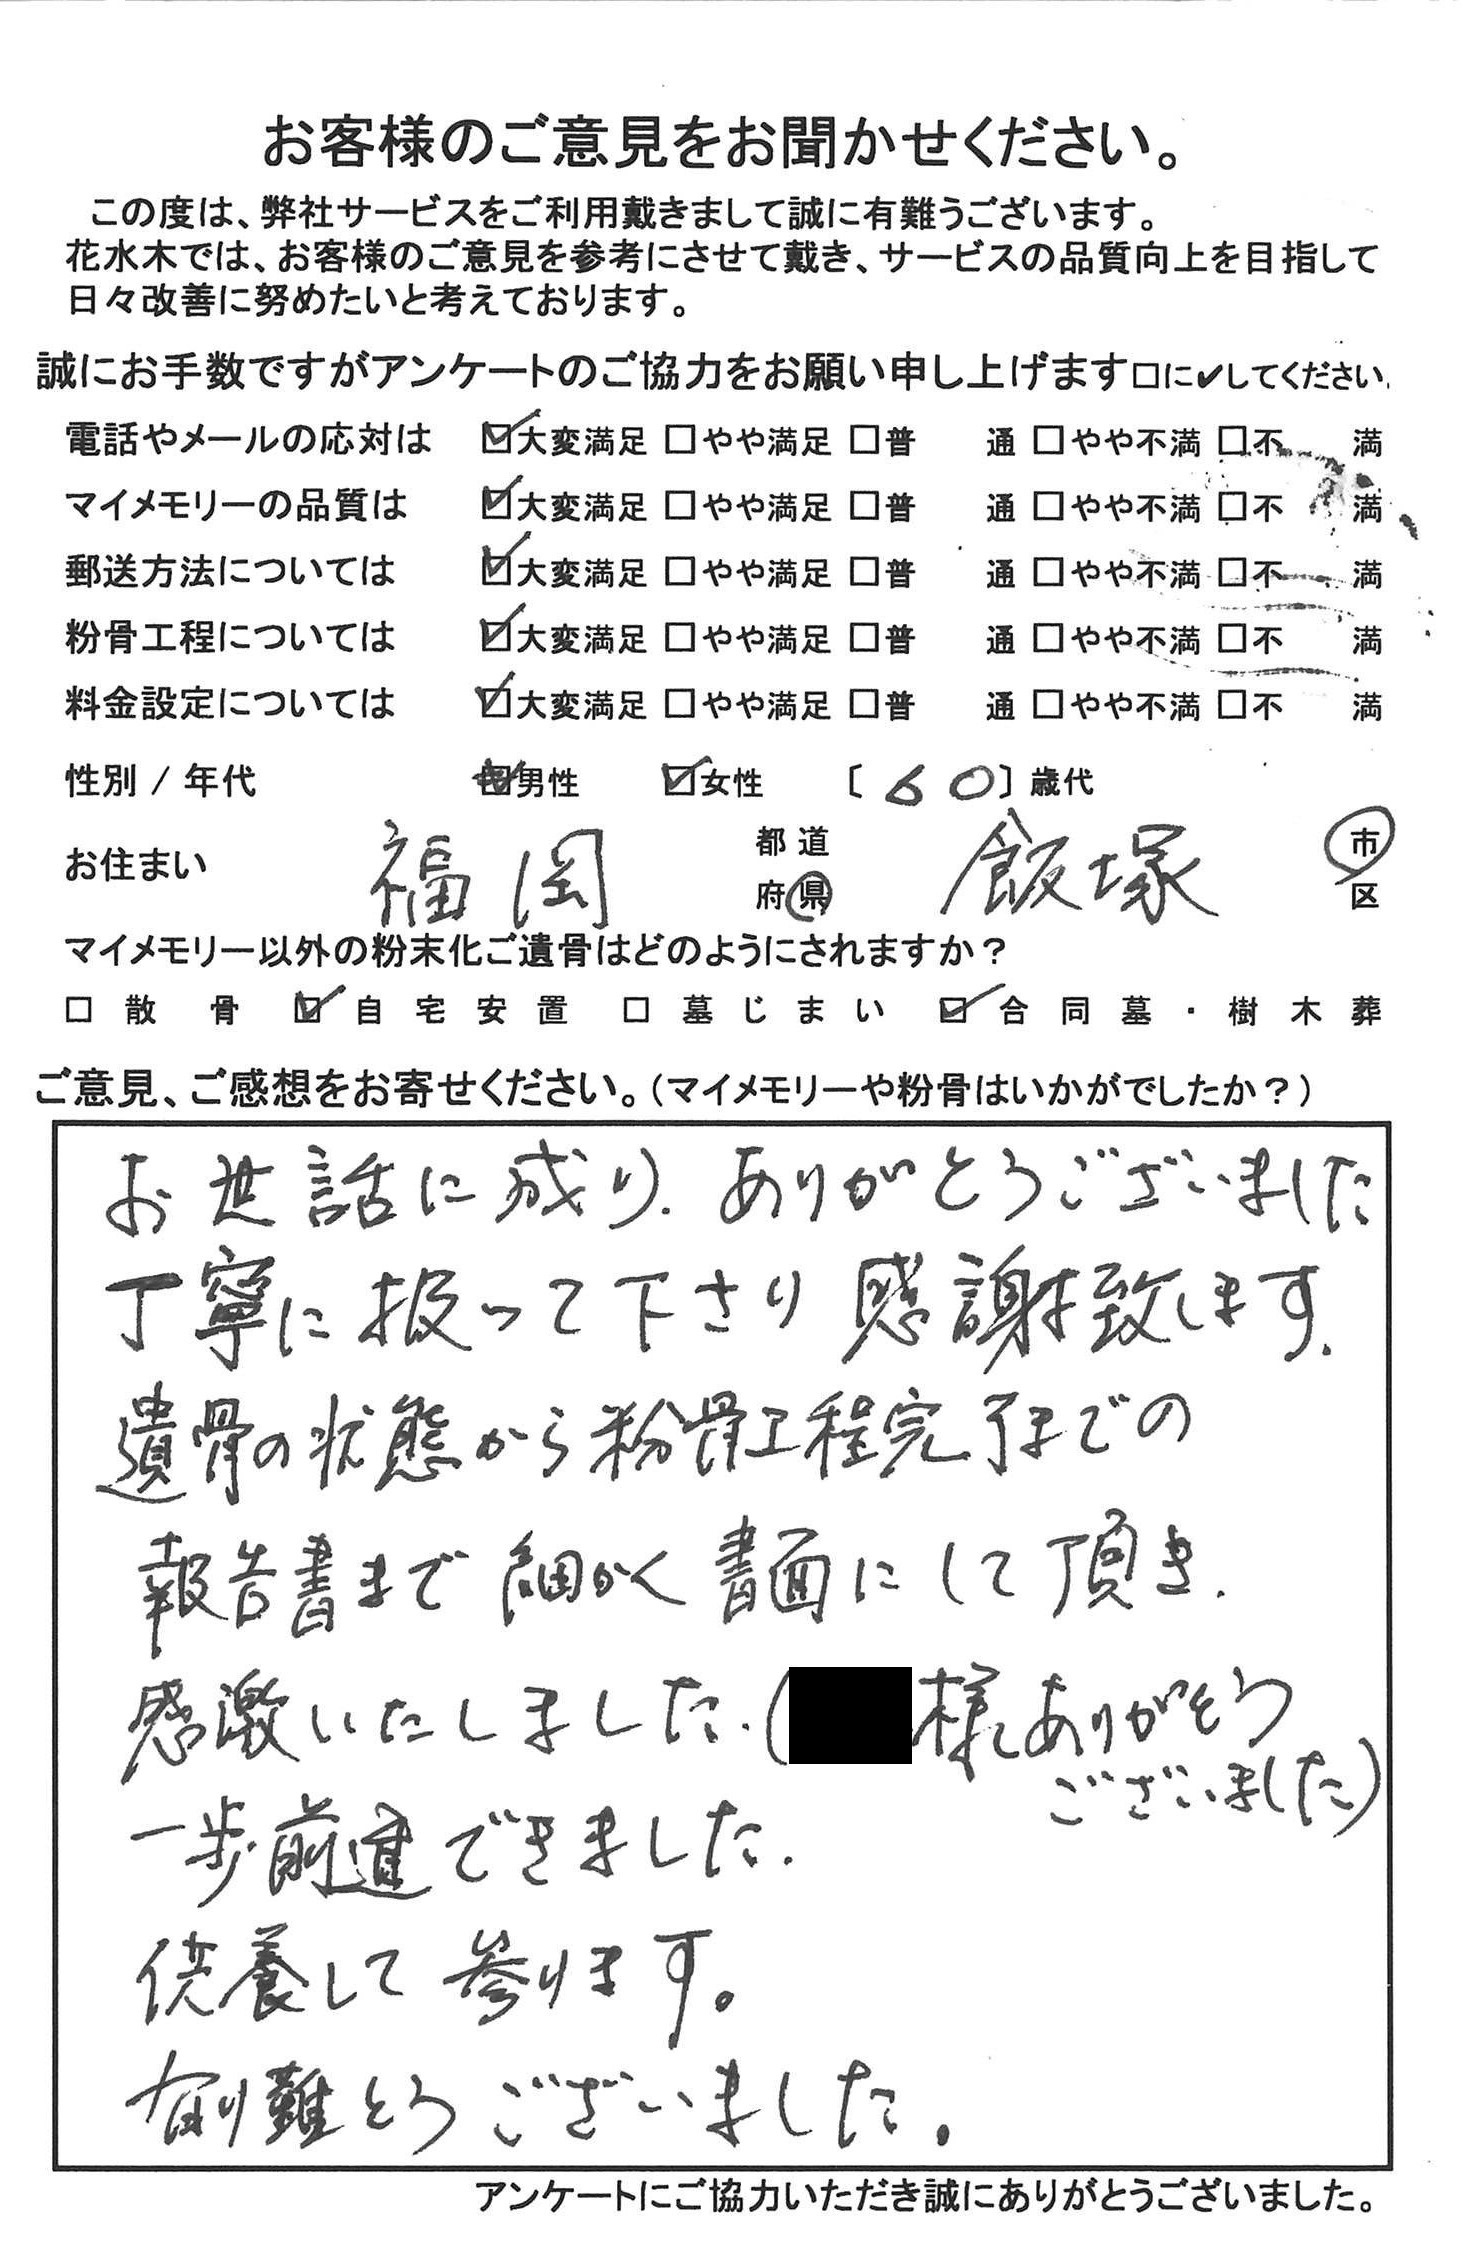 お客様のご意見をお聞かせください。
この度は、弊社サービスをご利用戴きまして誠に有難うございます。
花水木では、お客様のご意見を参考にさせて戴き、サービスの品質向上を目指して
日々改善に努めたいと考えております。
誠にお手数ですがアンケートのご協力をお願い申し上げます□に✔してください.
電話やメールの応対は ☑大変満足 □やや満足 □普 通 □やや不満 □不 満
マイメモリーの品質は ☑大変満足 □やや満足 □普 通 □やや不満 □不 満
郵送方法については ☑大変満足 □やや満足 □普 通 □やや不満 □不 満
粉骨工程については ☑大変満足 □やや満足 □普 通 □やや不満 □不 満
料金設定については ☑大変満足 □やや満足 □普 通 □やや不満 □不 満
性別 / 年代 男性 ☑女性 〔60〕歳代
お住まい 福岡 都道府県 飯塚 市区
マイメモリー以外の粉末化ご遺骨はどのようにされますか？
□散骨 ☑自宅安置 □墓じまい ☑合同墓・樹木葬
ご意見、ご感想をお寄せください。（マイメモリーや粉骨はいかがでしたか？）
お世話に成り. ありがとうございました
丁寧に扱って下さり 感謝致します.
遺骨の状態から粉骨工程完了までの
報告書まで 細かく 書面にして頂き.
感激いたしました.( 様ありがとう
ございました)
一歩前進できました.
供養して参ります。
有り難とうございました。
アンケートにご協力いただき誠にありがとうございました。